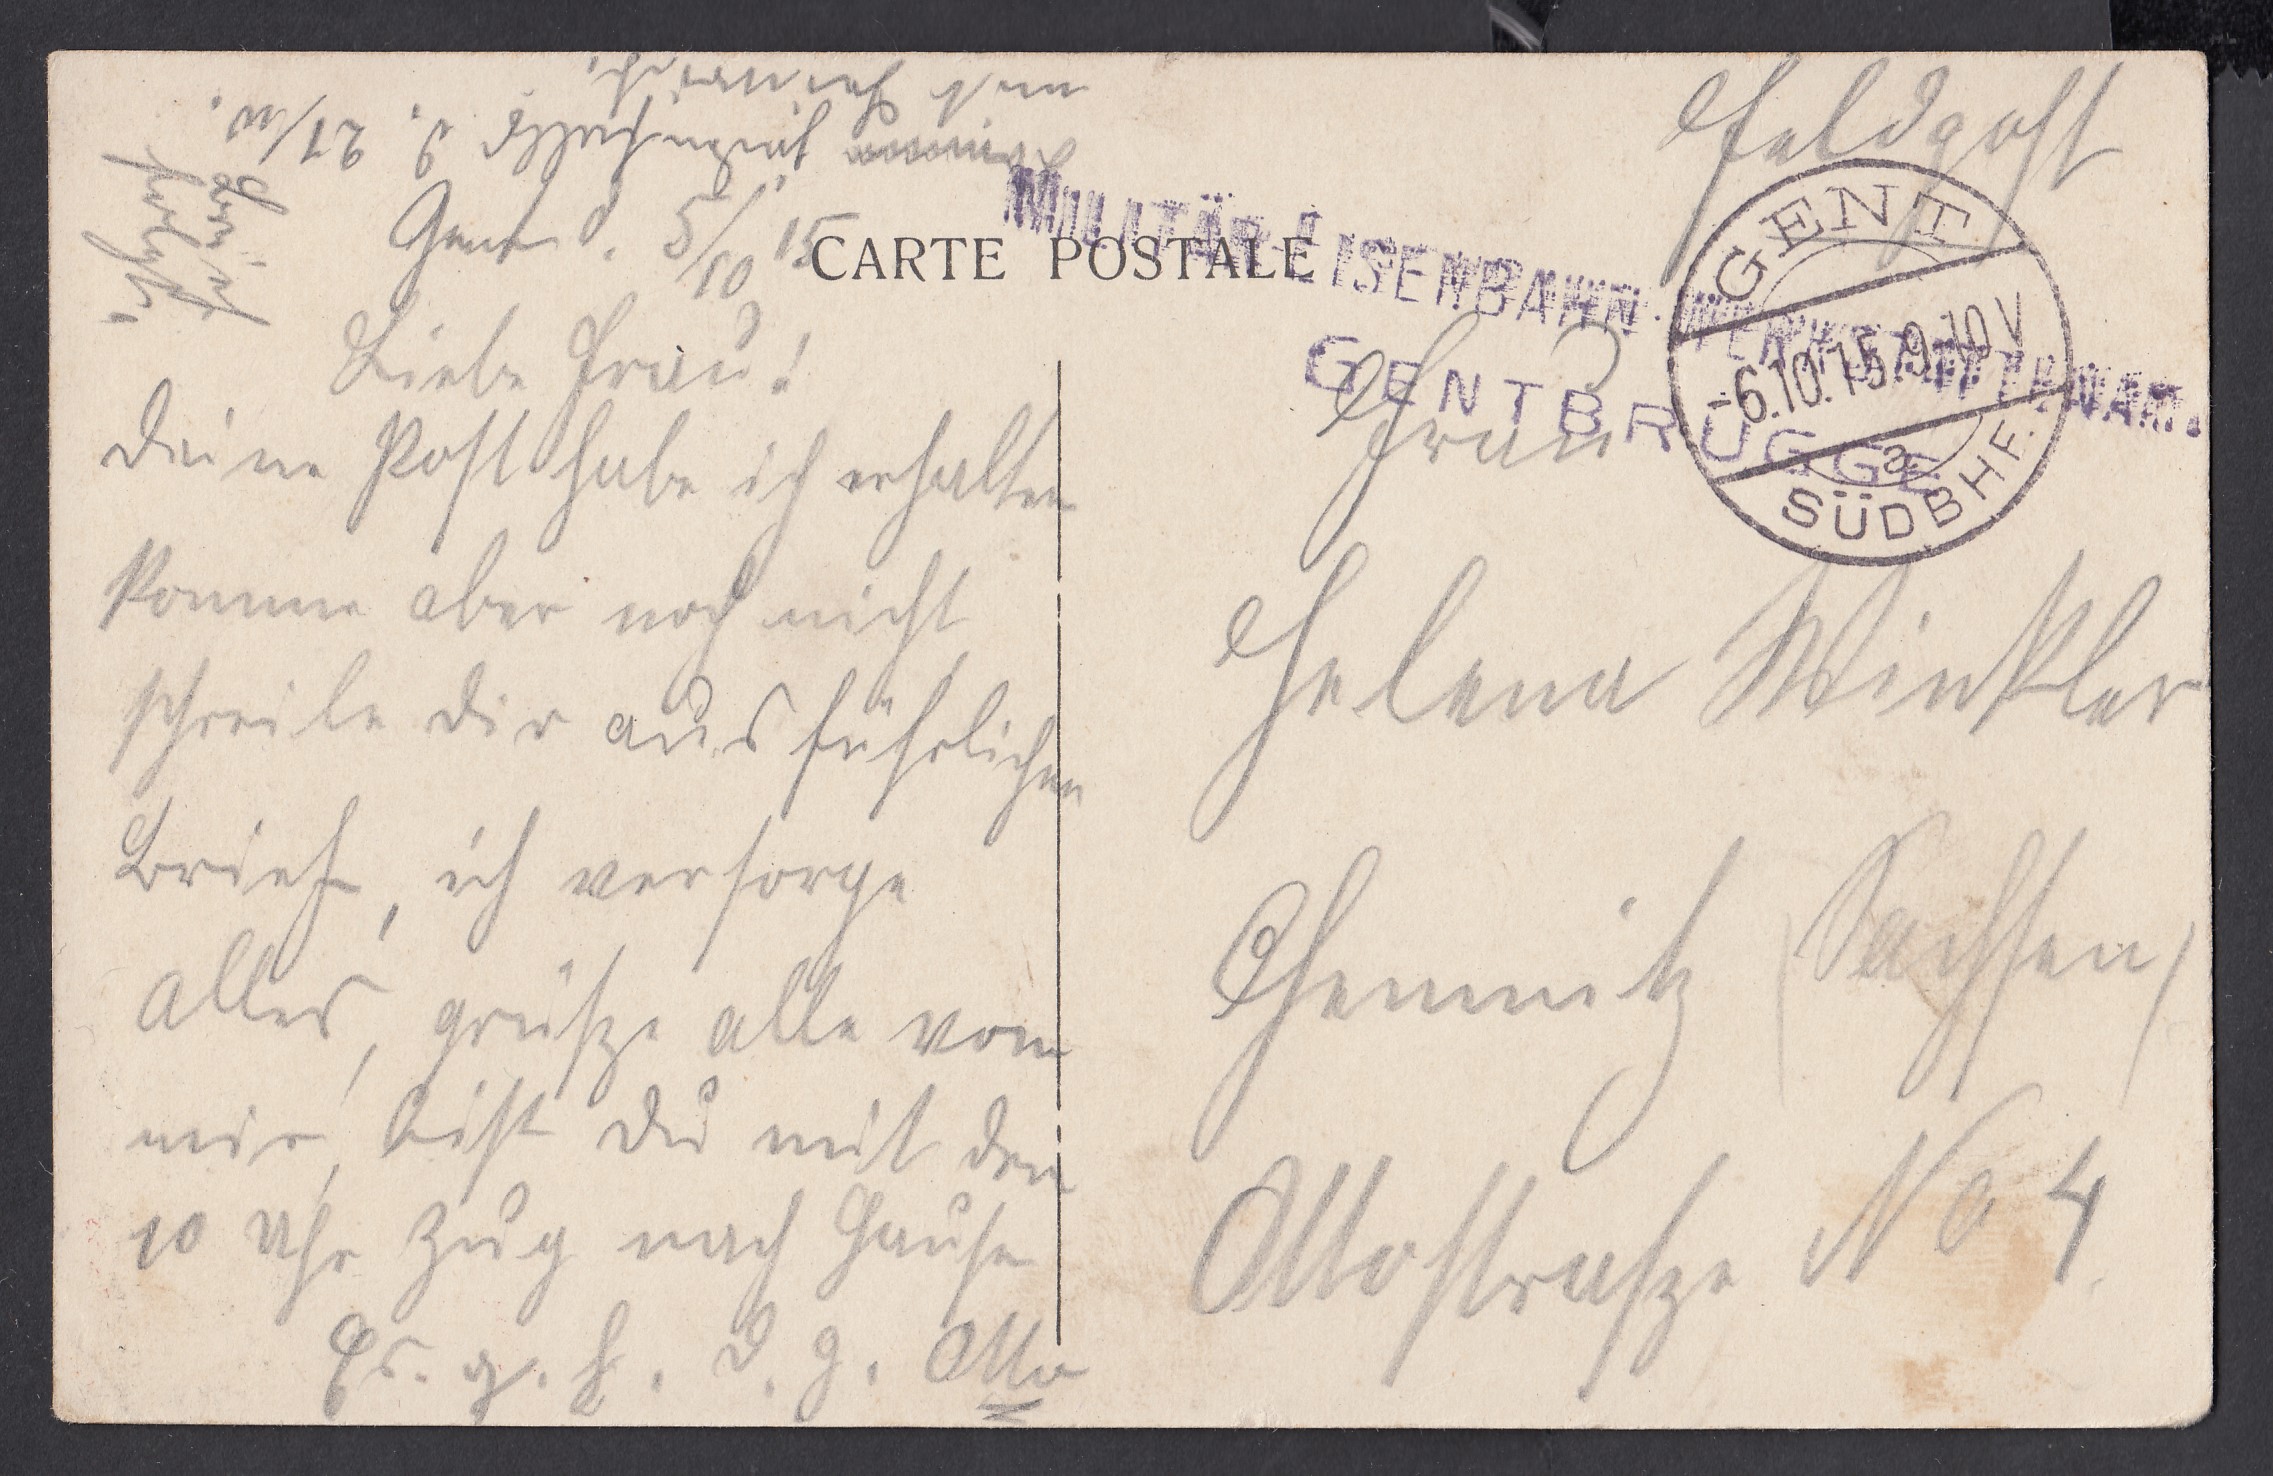 Feldpost
CARTE POSTALE
MILITÄR-EISENBAHN-WERKSTÄTTENAMT.
GENTBRÜGGE
GENT
-6.10.15 9-10V
a
SÜDBHF.
Gent d. 5/10 15
Liebe Frau!
Deine Post habe ich erhalten
komme aber noch nicht
schreibe dir ausführlichen
Brief, ich versorge
alles, grüsze alle von
mir, bist Du mit den
10 Uhr Zug nach Hause
Es. g. h. D. g. Otto
d. 27/10.
Frau
Helena Winkler
Chemnitz (Sachsen)
Ottostrasze No 4